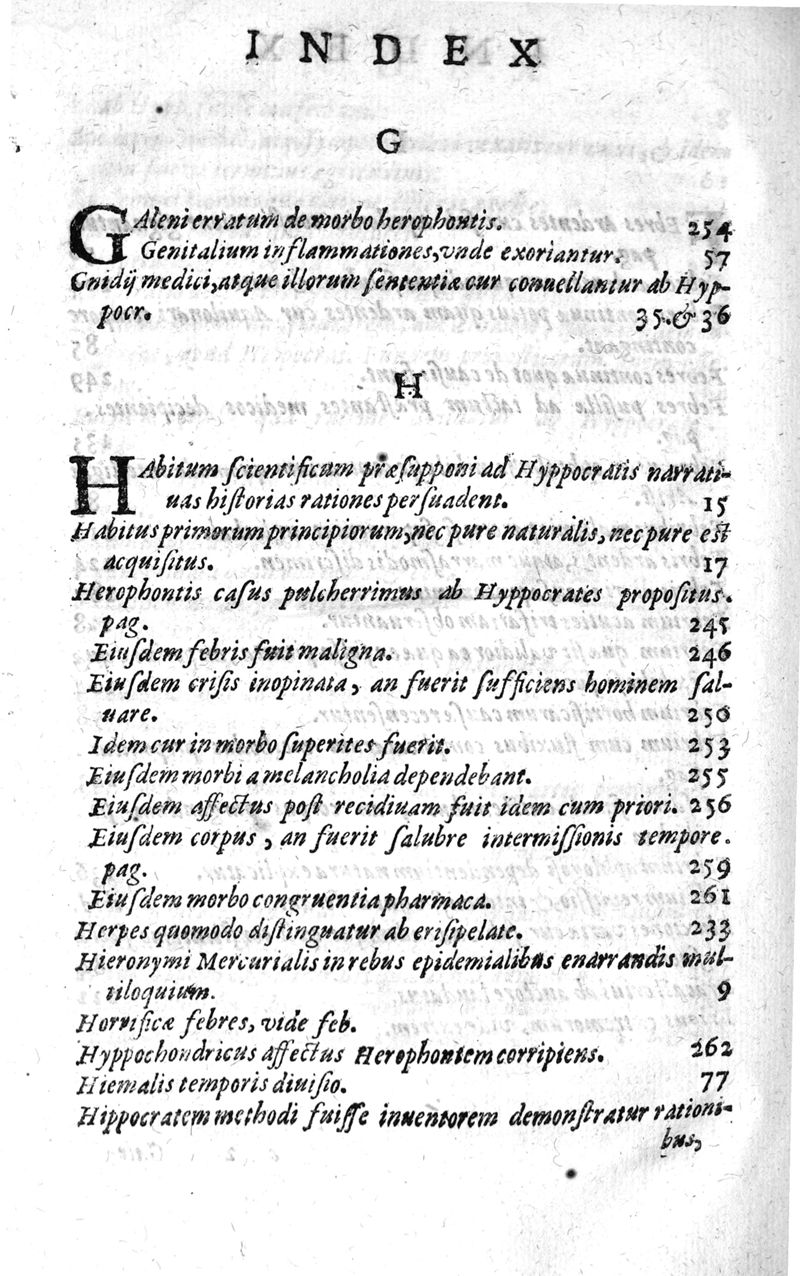 INDEX
G
GAleni erratum de morbo herophontis. 254
Genitalium inflammationes, vnde exoriantur. 57
Gnidij medici, atque illorum ſententiæ cur conuellantur ab Hyp-
pocr. 35. & 36
H
HAbitum ſcientificum præſupponi ad Hyppocratis narrati-
uas hiſtorias rationes perſuadent. 15
Habitus primorum principiorum, nec pure naturalis, nec pure eſt
acquiſitus. 17
Herophontis caſus pulcherrimus ab Hyppocrates propoſitus.
pag. 245
Eiuſdem febris fuit maligna. 246
Eiuſdem criſis inopinata, an fuerit ſufficiens hominem ſal-
uare. 250
Idem cur in morbo ſuperſtes fuerit. 253
Eiuſdem morbi a melancholia dependebant. 255
Eiuſdem affectus poſt recidiuam fuit idem cum priori. 256
Eiuſdem corpus, an fuerit ſalubre intermiſſionis tempore.
pag. 259
Eiuſdem morbo congruentia pharmaca. 261
Herpes quomodo diſtinguatur ab eriſipelate. 233
Hieronymi Mercurialis in rebus epidemialibus enarrandis mul-
tiloquium. 9
Horrificæ febres, vide feb.
Hyppochondricus affectus Herophontem corripiens. 262
Hiemalis temporis diuiſio. 77
Hippocratem methodi fuiſſe inuentorem demonſtratur rationi-
bus,